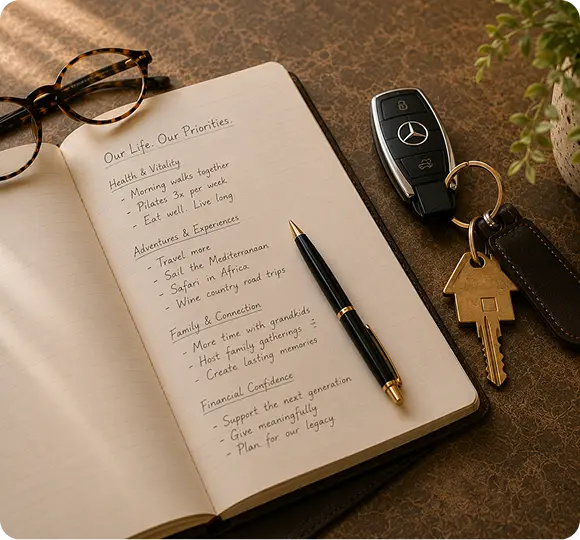 Our Life. Our Priorities.
Health & Vitality
- Morning walks together
- Pilates 3x per week
- Eat well. Live long.
Adventures & Experiences
- Travel more
- Sail the Mediterranean
- Safari in Africa
- Wine country road trips
Family & Connection
- More time with grandkids
- Host family gatherings
- Create lasting memories
Financial Confidence
- Support the next generation
- Give meaningfully
- Plan for our legacy